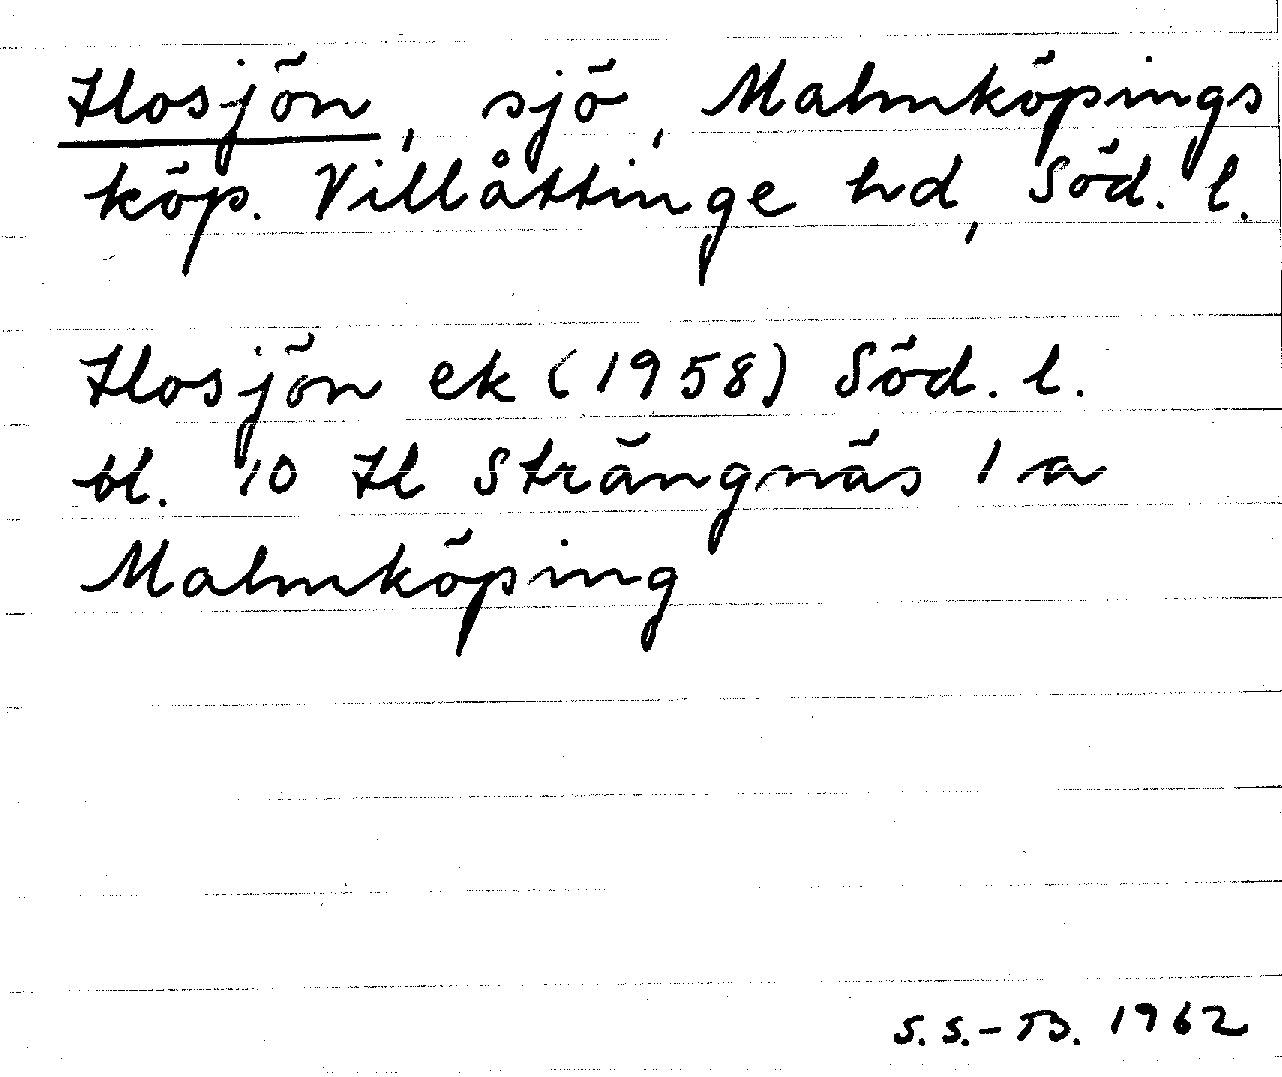 Hosjön, sjö, Malmköpings
köp. Villåttinge hd, Söd. l.
Hosjön ek (1958) Söd. l.
bl. 10 H Strängnäs 1 a
Malmköping
S. S.-B. 1962